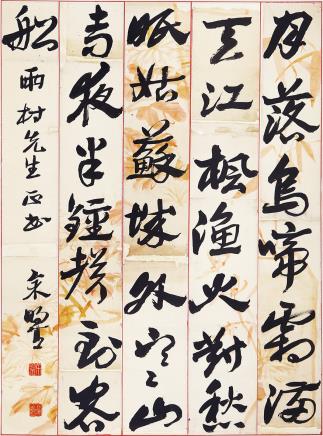 月落烏啼霜滿
天江楓漁火對愁
眠姑蘇城外寒山
寺夜半鐘聲到客
船
雨村先生正